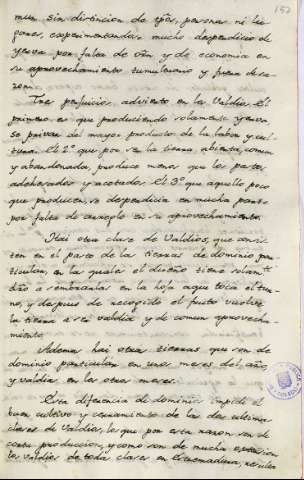 152
mun sin distincion de tpos, personas ni lu-
gares, experimentandose mucho desperdicio de
yerva por falta de oñ. y de economia en
su aprovechamiento tumultuario y fuera de ra-
zon.
Tres perjuicios advierto en los Valdíos. El
primero es que produciendo solamente yerva,
se privan del mayor producto de la labor y cul-
tura. El 2º que por ser la tierra abierta, comun
y abandonada, produce menos que los pastos
adehesados y acotados. El 3º que aquello poco
que producen, se desperdicia en mucha parte
por falta de arreglo en su aprovechamiento.
Hai otra clase de Valdíos, que consis-
ten en el pasto de las tierras de dominio par-
ticular, en las quales el dueño tiene solamte
dro a sembrarlas en la hoja aque toca el tur-
no, y despues de recogido el fruto vuelve
la tierra a ser valdía y de comun aprovecha-
miento.
Ademas hai otras tierras que son de
dominio particular en unos meses del año,
y valdías en los otros meses.
Esta diferencia de dominios impide el
buen cultivo y cerramiento de las dos ultimas
clases de Valdíos, los que por esta razon son de
corta produccion, y como son de mucha extension
los valdíos de todas clases en Extremadura, resulta